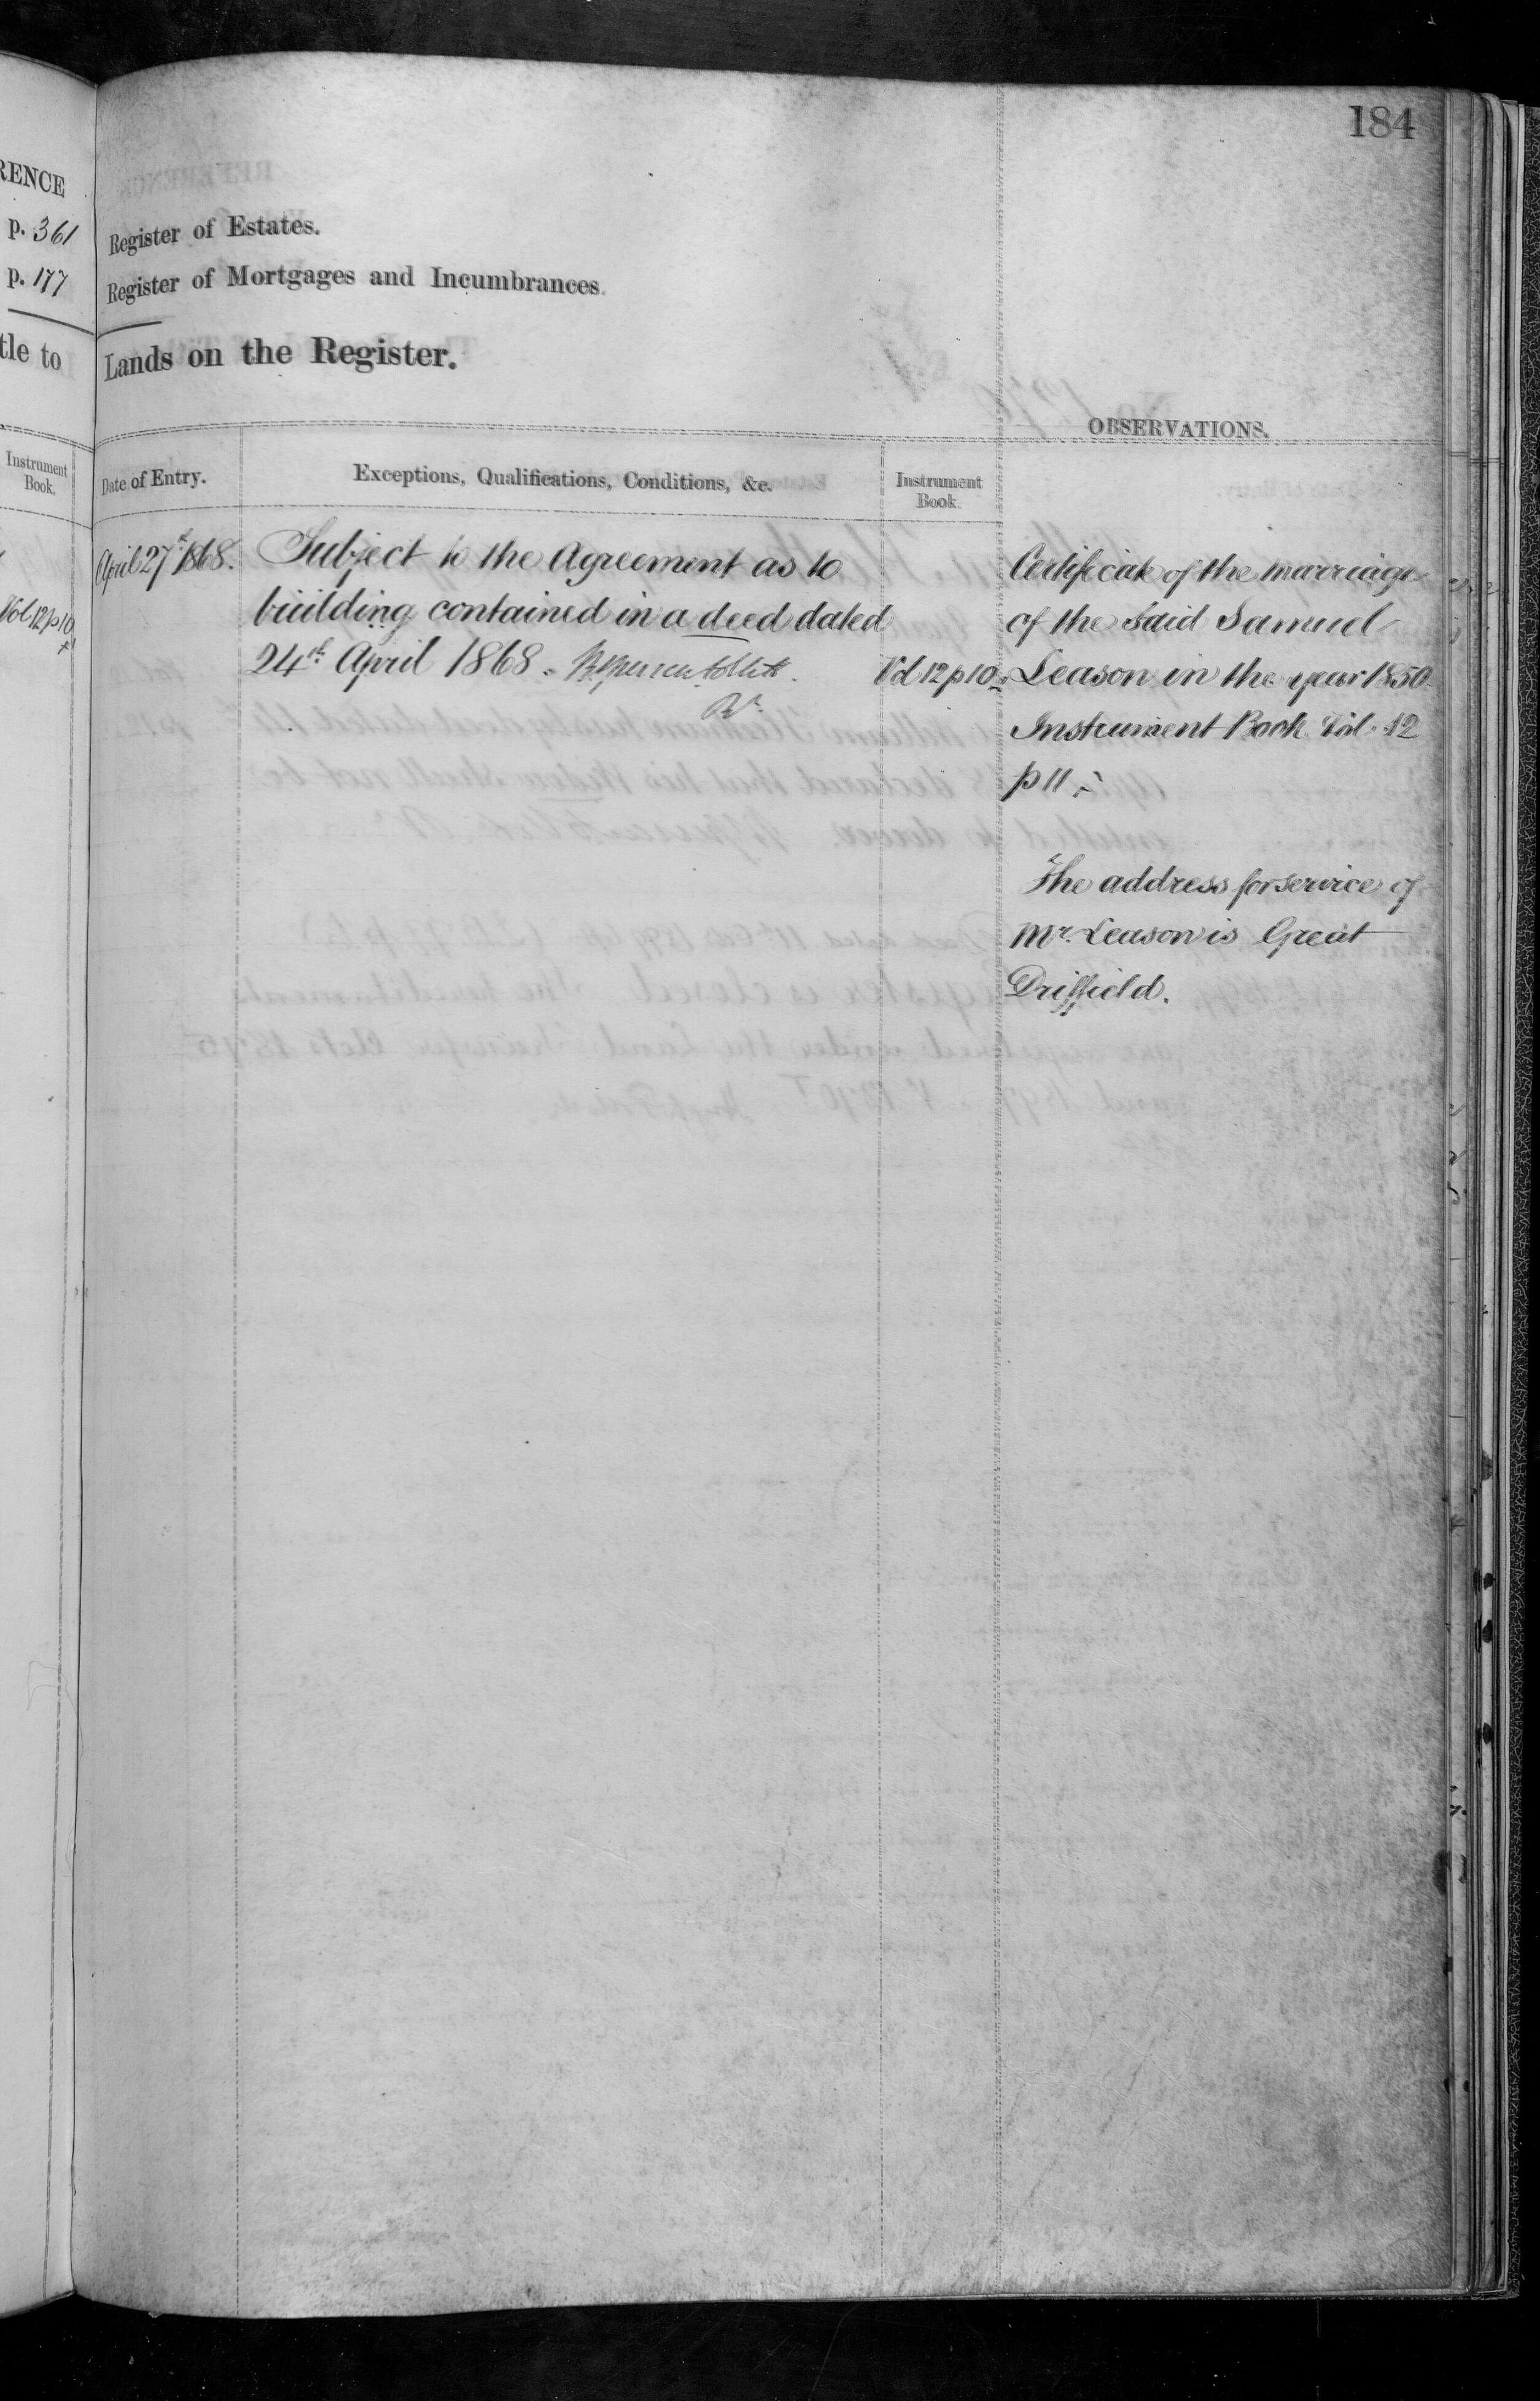 184
RENCE
p. 361
p. 177
tle to
Instrument
Book.
Vol 12 p 10
Register of Estates.
Register of Mortgages and Incumbrances.
Lands on the Register.
OBSERVATIONS.
Date of Entry.
Exceptions, Qualifications, Conditions, &c.
Instrument
Book.
April 27th 1868.
Subject to the Agreement as to
building contained in a deed dated
24th April 1868.
Vol 12 p 10
Certificate of the marriage
of the said Samuel
Leason in the year 1850
Instrument Book Vol. 12
p 11
The address for service of
Mr. Leason is Great
Driffield.